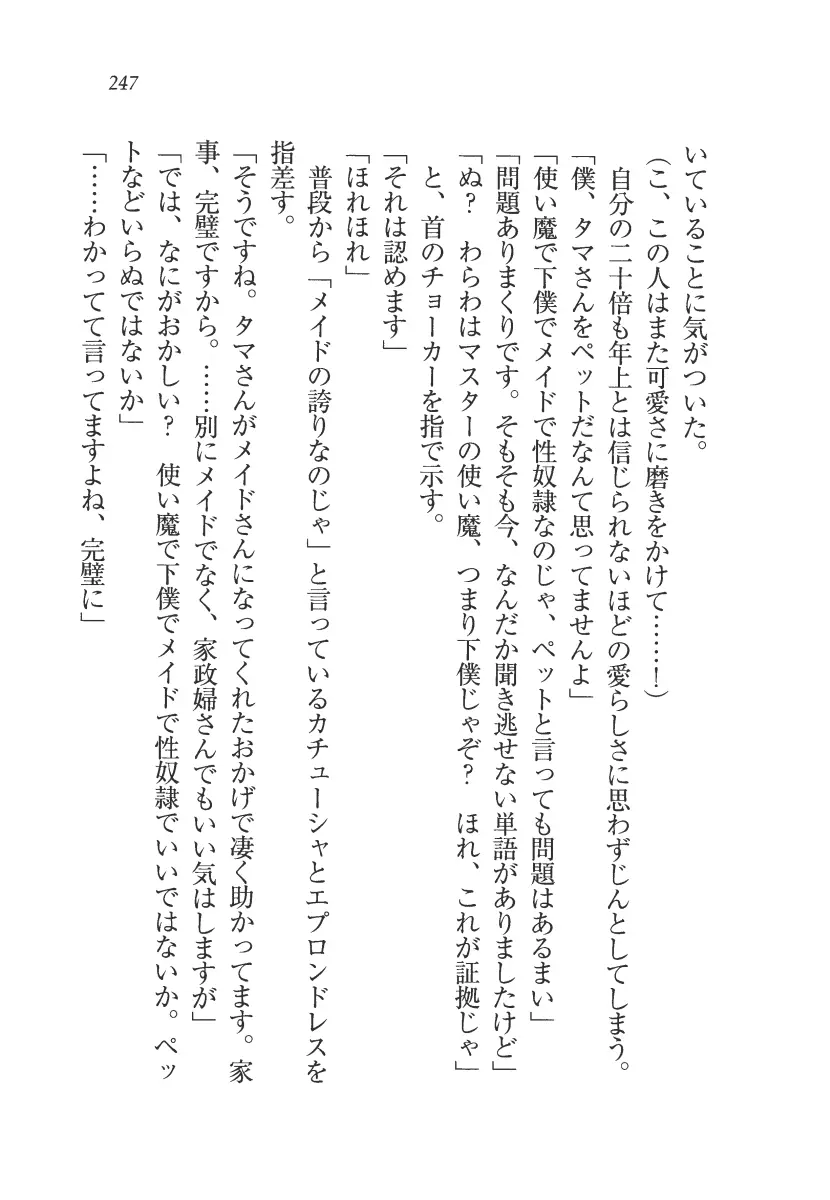 247
いていることに気がついた。
(こ、この人はまた可愛さに磨きをかけて……！)
　自分の二十倍も年上とは信じられないほどの愛らしさに思わずじんとしてしまう。
「僕、タマさんをペットだなんて思ってませんよ」
「使い魔で下僕でメイドで性奴隷なのじゃ、ペットと言っても問題はあるまい」
「問題ありまくりです。そもそも今、なんだか聞き逃せない単語がありましたけど」
「ぬ？　わらわはマスターの使い魔、つまり下僕じゃぞ？　ほれ、これが証拠じゃ」
　と、首のチョーカーを指で示す。
「それは認めます」
「ほれほれ」
　普段から「メイドの誇りなのじゃ」と言っているカチューシャとエプロンドレスを
指差す。
「そうですね。タマさんがメイドさんになってくれたおかげで凄く助かってます。家
事、完璧ですから。……別にメイドでなく、家政婦さんでもいい気はしますが」
「では、なにがおかしい？　使い魔で下僕でメイドで性奴隷でいいではないか。ペッ
トなどいらぬではないか」
「……わかってて言ってますよね、完璧に」